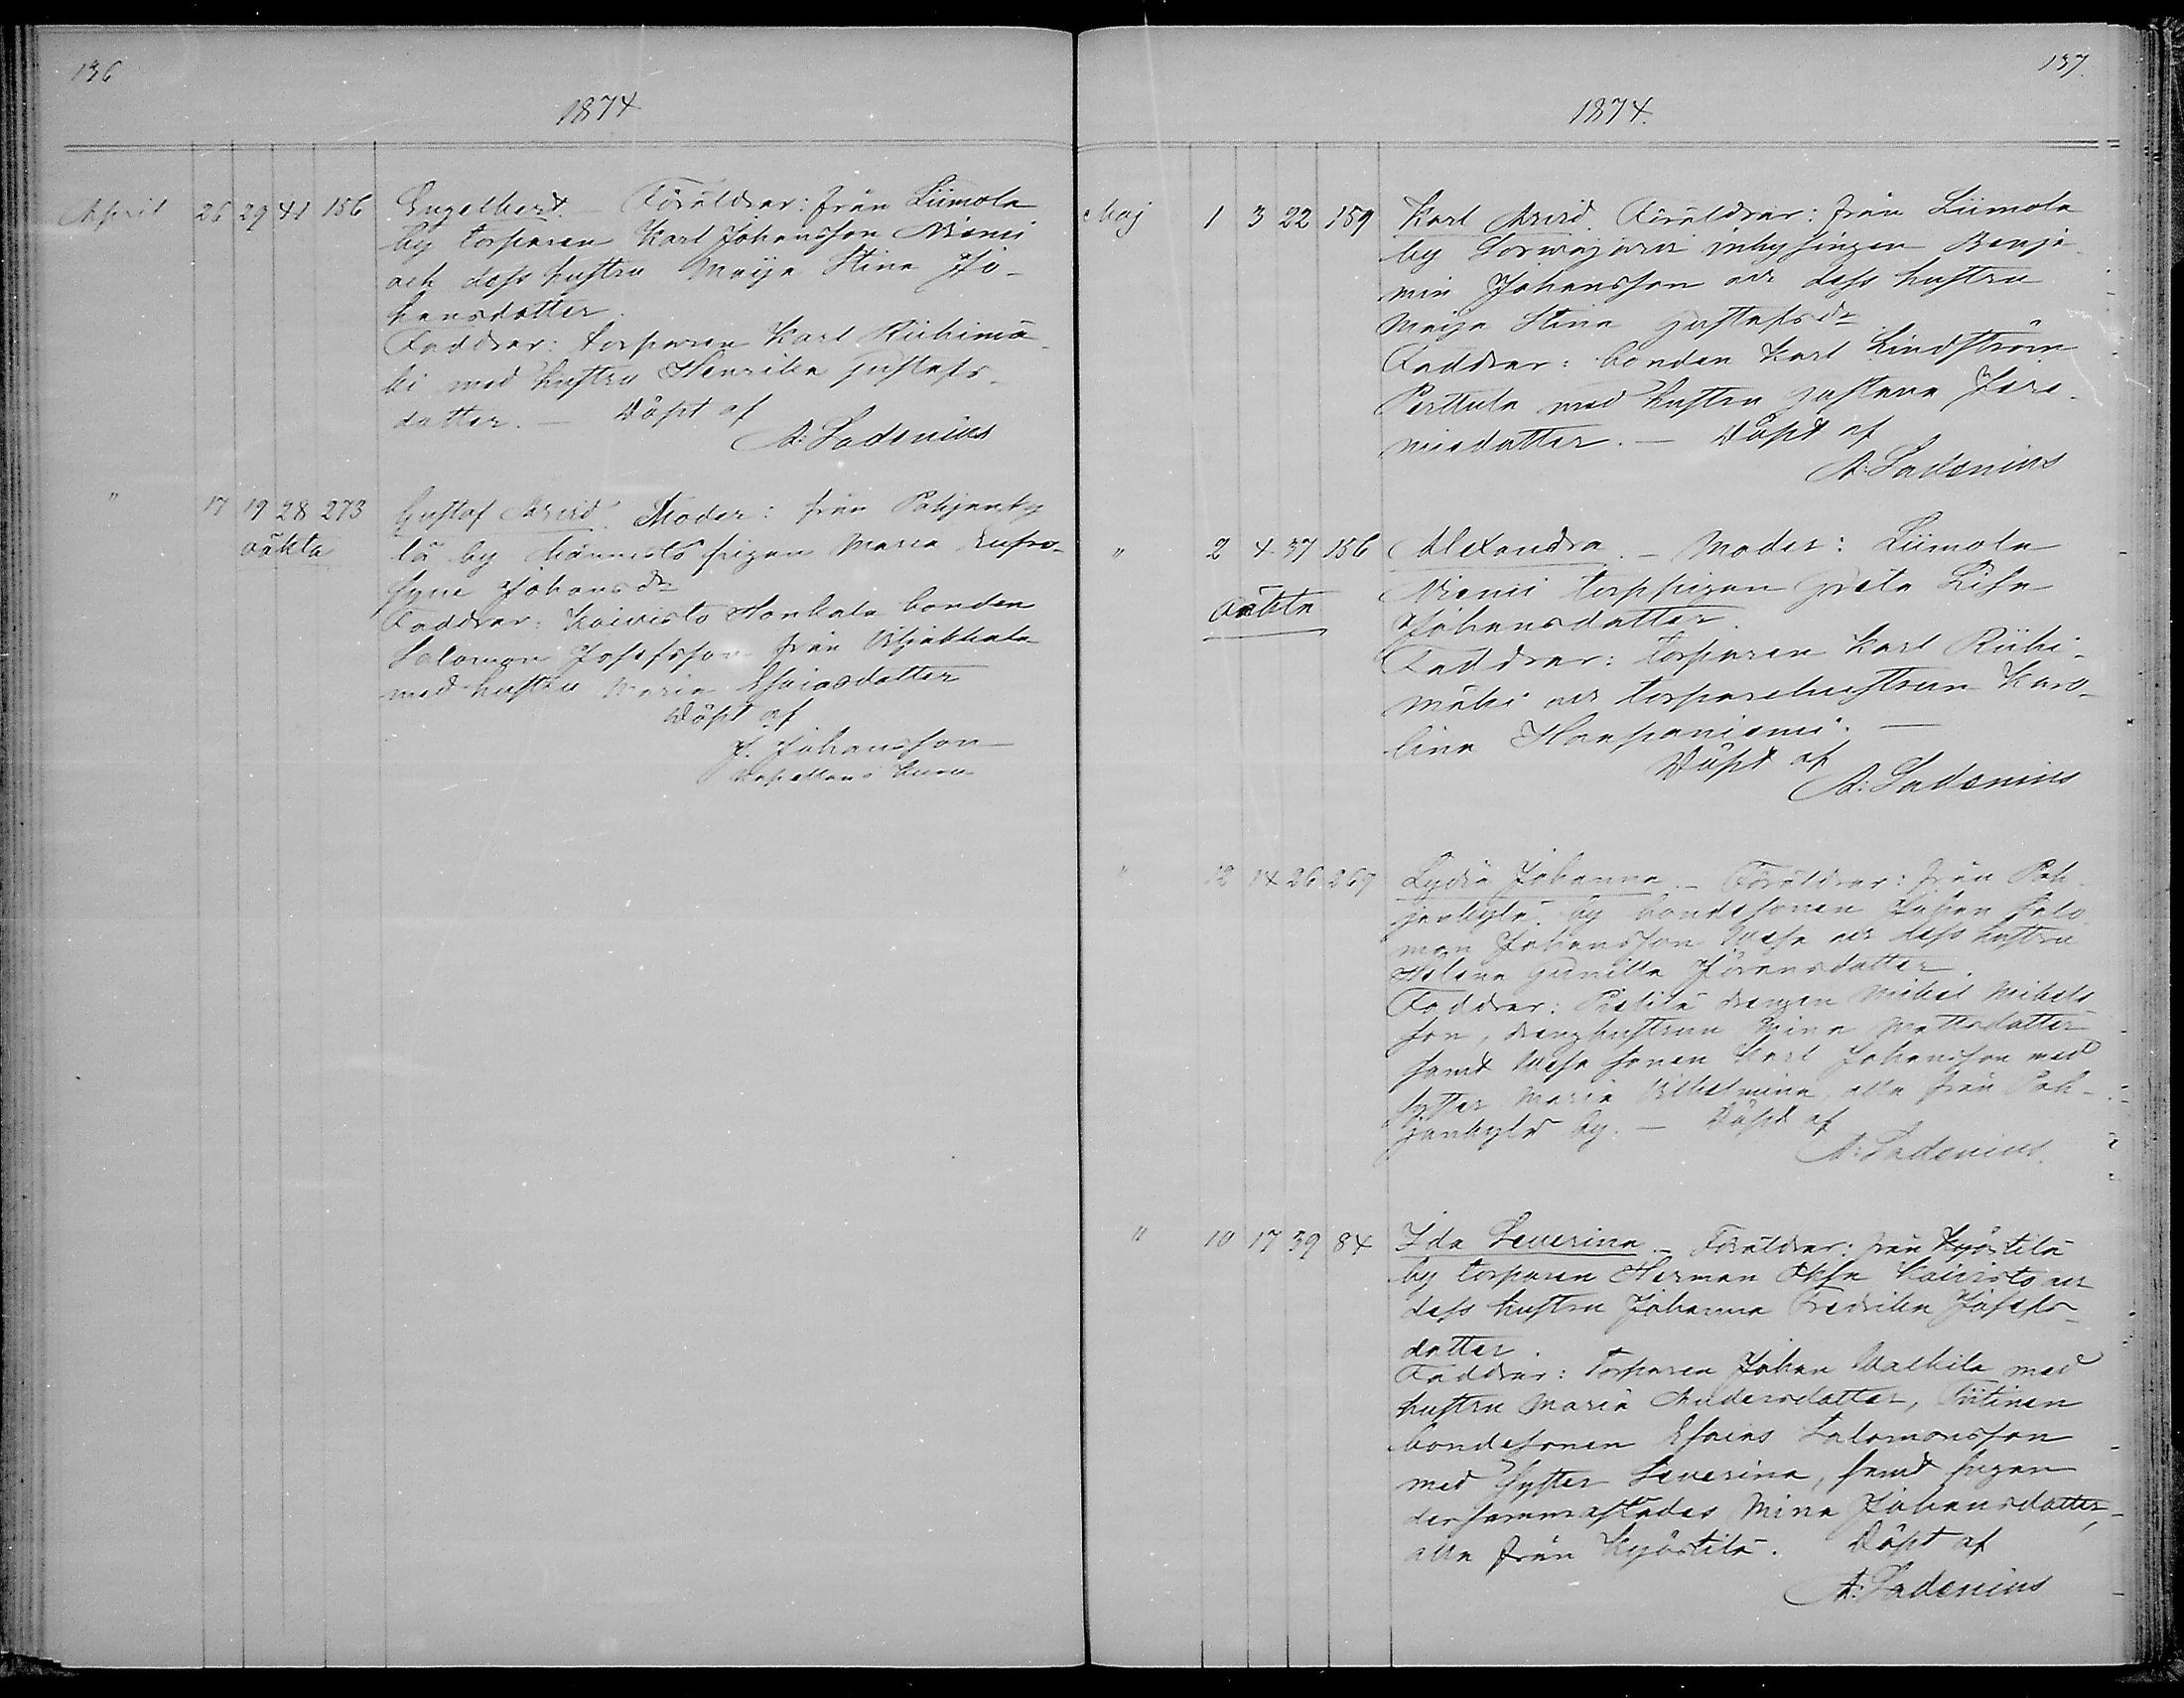 136
1874
April 26 29 41 156 Engelbert. – Föräldrar: från Liimola
by torparen Karl Johansson Niemi
och dess hustru Maija Stina Jo-
hansdotter.
Faddrar: torparen Karl Riihimä-
ki med hustru Henrika Gustafs-
dotter. – Döpt af
A: Ladenius
" 17 19 28 273 Gustaf Arvid. Moder: från Pohjanky
oäkta
lä by Hannisto pigan Maria Eufro-
syne Johansdr
Faddrar: Koivisto Honkala bonden
Salomon Josefsson från Viljakkala
med hustru Maria Esaiasdotter
Döpt af
J. Johansson
Kapellans
137.
1874.
Maj 1 3 22 159 Karl Arvid. Föräldrar: från Liimola
by Sorvajärvi inhysingen Benja
min Johansson och dess hustru
Maija Stina Gustafsdr
Faddrar: bonden Karl Lindström
Perttula med hustru Gustava Jere-
miedotter. – Döpt af
A: Ladenius
" 2 4 37 156 Alexandra. – Moder: Liimola
oäkta
Niemi torppigan Greta Lisa
Johansdotter.
Faddrar: torparen Karl Riihi-
mäki och torparehustrun Karo-
lina Haapaniemi. –
Döpt af
A: Ladenius
" 12 14 26 267 Lydia Johanna. – Föräldrar: från Poh-
jankylä by bondesonen Johan Salo
mon Johansson Uusa och dess hustru
Helena Gunilla Göransdotter.
Faddrar: Pietilä drängen Mikel Mikels
son, dränghustrun Mina Mattsdotter
samt Uusa sonen Karl Johansson med
syster Maria Vilhelmina, alla från Poh-
jankylä by. – Döpt af
A: Ladenius.
" 10 17 39 84 Ida Severina. – Föräldrar: från Kyöstilä
by torparen Herman Koivisto och
dess hustru Johanna Fredrika Josefs-
dotter.
Faddrar: Torparen Johan Walkila med
hustru Maria Andersdotter, Piitinen
bondesonen Esaias Salomonsson
med syster Severina, samt pigan
dersammastädes Mina Johansdotter,
alla från Kyöstilä. Döpt af
A: Ladenius